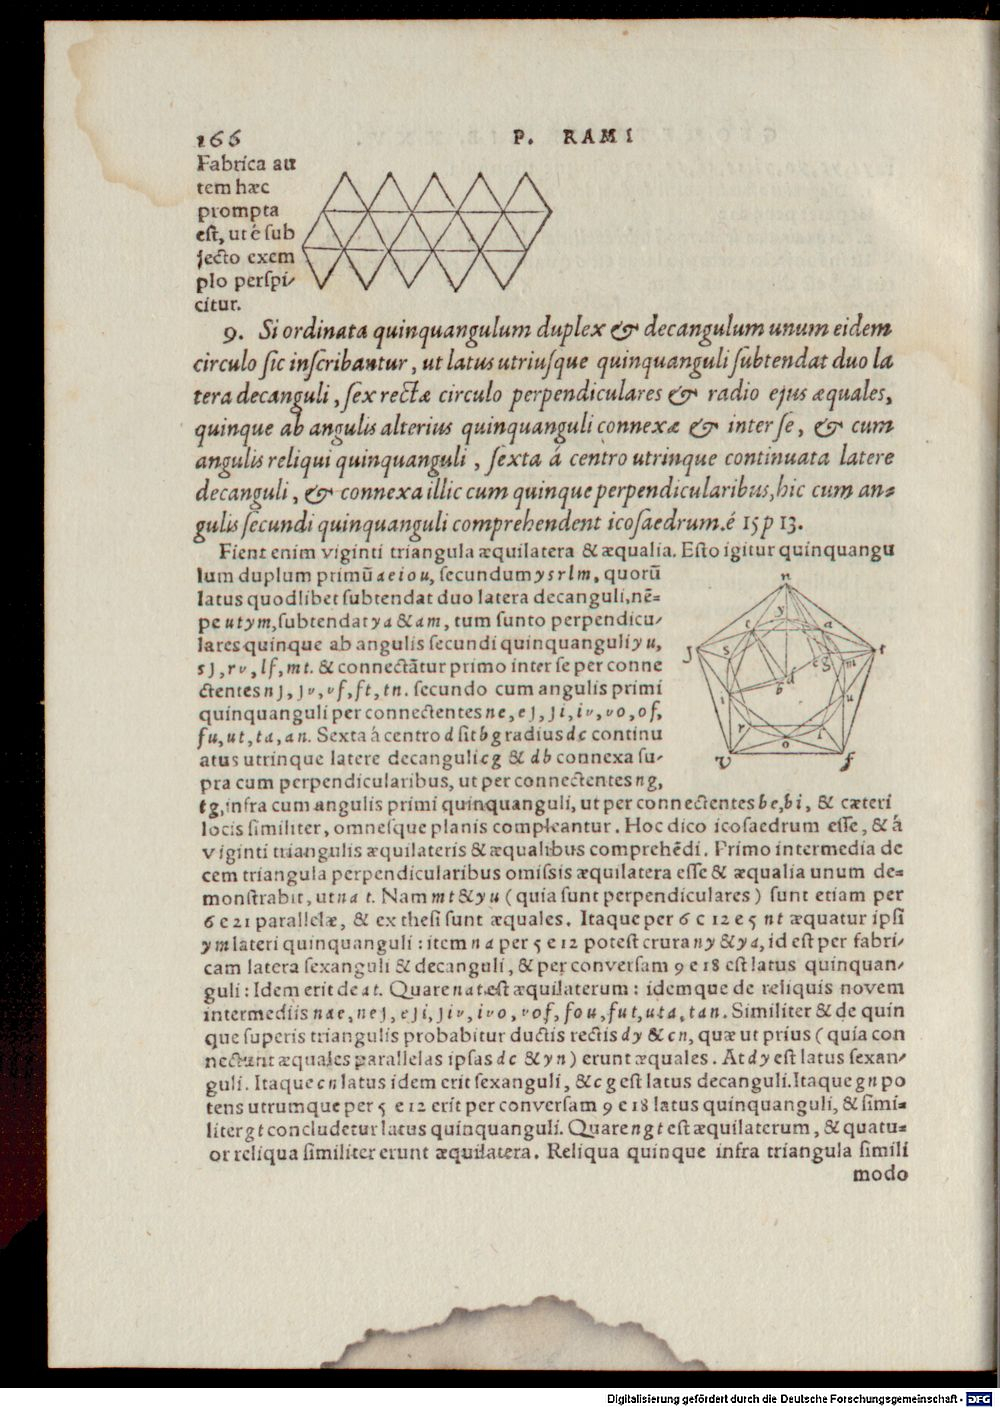 166
P. RAMI
Fabrica au
tem hæc
prompta
eſt, ut é ſub
jecto exem
plo perſpi-
citur.
9. Si ordinata quinquangulum duplex & decangulum unum eidem
circulo ſic inſcribantur, ut latus utriuſque quinquanguli ſubtendat duo la
tera decanguli, ſex rectæ circulo perpendiculares & radio ejus æquales,
quinque ab angulis alterius quinquanguli connexæ & inter ſe, & cum
angulis reliqui quinquanguli, ſexta á centro utrinque continuata latere
decanguli, & connexa illic cum quinque perpendicularibus, hic cum an=
gulis ſecundi quinquanguli comprehendent icoſaedrum. é 15 p 13.
Fient enim viginti triangula æquilatera & æqualia. Eſto igitur quinquangu
lum duplum primũ a e i o u, ſecundum y s r l m, quorũ
latus quodlibet ſubtendat duo latera decanguli, nē=
pe u t y m, ſubtendat y a & a m, tum ſunto perpendicu-
lares quinque ab angulis ſecundi quinquanguli y u,
s j, r v, l f, m t. & connectãtur primo inter ſe per conne
ctentes n j, j v, v f, f t, t n. ſecundo cum angulis primi
quinquanguli per connectentes n e, e j, j i, i v, v o, o f,
f u, u t, t a, a n. Sexta á centro d ſit b g radius d c continu
atus utrinque latere decanguli c g & d b connexa ſu-
pra cum perpendicularibus, ut per connectentes n g,
t g, infra cum angulis primi quinquanguli, ut per connectentes b e, b i, & cæteri
locis ſimiliter, omneſque planis compleantur. Hoc dico icoſaedrum eſſe, & á
viginti triangulis æquilateris & æqualibus comprehēdi. Primo intermedia de
cem triangula perpendicularibus omiſsis æquilatera eſſe & æqualia unum de=
monſtrabit, ut n a t. Nam m t & y u (quia ſunt perpendiculares) ſunt etiam per
6 e 21 parallelæ, & ex theſi ſunt æquales. Itaque per 6 c 12 e 5 n t æquatur ipſi
y m lateri quinquanguli: item n a per 5 e 12 poteſt crura n y & y a, id eſt per fabri-
cam latera ſexanguli & decanguli, & per converſam 9 e 18 eſt latus quinquan-
guli: Idem erit de a t. Quare n a t eſt æquilaterum: idemque de reliquis novem
intermediis n a e, n e j, e j i, j i v, i v o, v o f, f o u, f u t, u t a, t a n. Similiter & de quin
que ſuperis triangulis probabitur ductis rectis d y & c n, quæ ut prius (quia con
nectunt æquales parallelas ipſas d c & y n) erunt æquales. At d y eſt latus ſexan-
guli. Itaque c n latus idem erit ſexanguli, & c g eſt latus decanguli. Itaque g n po
tens utrumque per 5 e 12 erit per converſam 9 e 18 latus quinquanguli, & ſimi=
liter g t concludetur latus quinquanguli. Quare n g t eſt æquilaterum, & quatu=
or reliqua ſimiliter erunt æquilatera. Reliqua quinque infra triangula ſimili
modo
n
y
e
a
j
s
c
g
m
t
d
b
i
u
r
l
o
v
f
Digitalisierung gefördert durch die Deutsche Forschungsgemeinschaft - DFG